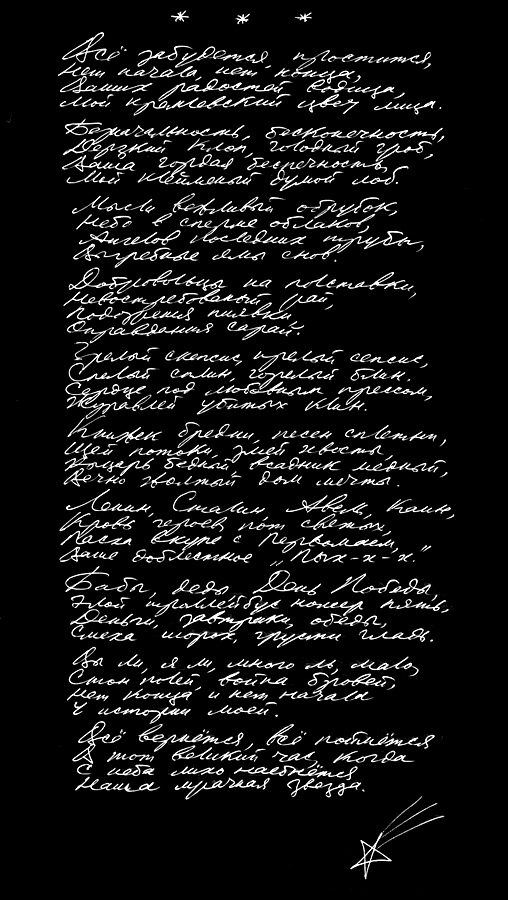 * * *
Всё забудется, простится,
Нет начала, нет конца,
Ваших радостей водица,
Мой кремлёвский цвет лица.
Безначальность, бесконечность,
Дерзкий клоп, голодный гроб,
Ваша гордая беспечность,
Мой клейменый думой лоб.
Мысли вежливый обрубок,
Небо в сперме облаков,
Ангелов последних трубы,
Выгребные ямы снов.
Добровольцы на полставки,
Невостребованый рай,
Подозрения пиявки,
Оправдания сарай.
Зрелый скепсис, прелый сепсис,
Спелый сплин, горелый блин.
Сердце под любовным прессом,
Журавлей убитых клин.
Книжек бредни, песен сплетни,
Щей потоки, змей хвосты,
Рыцарь бедный, всадник медный,
Вечно жёлтый дом мечты.
Ленин, Сталин, Авель, Каин,
Кровь героев, пот святых,
Пасха вкупе с Первомаем,
Ваше доблестное „Пых-х-х."
Бабы, деды, День Победы,
Злой троллейбус номер пять,
Деньги, завтраки, обеды,
Смеха шорох, грусти гладь.
Вы ли, я ли, много ль, мало,
Стон полей, война бровей,
Нет конца и нет начала
У истории моей.
Всё вернётся, всё поймётся
В тот великий час, когда
С неба лихо наебнётся
Наша мрачная звезда.